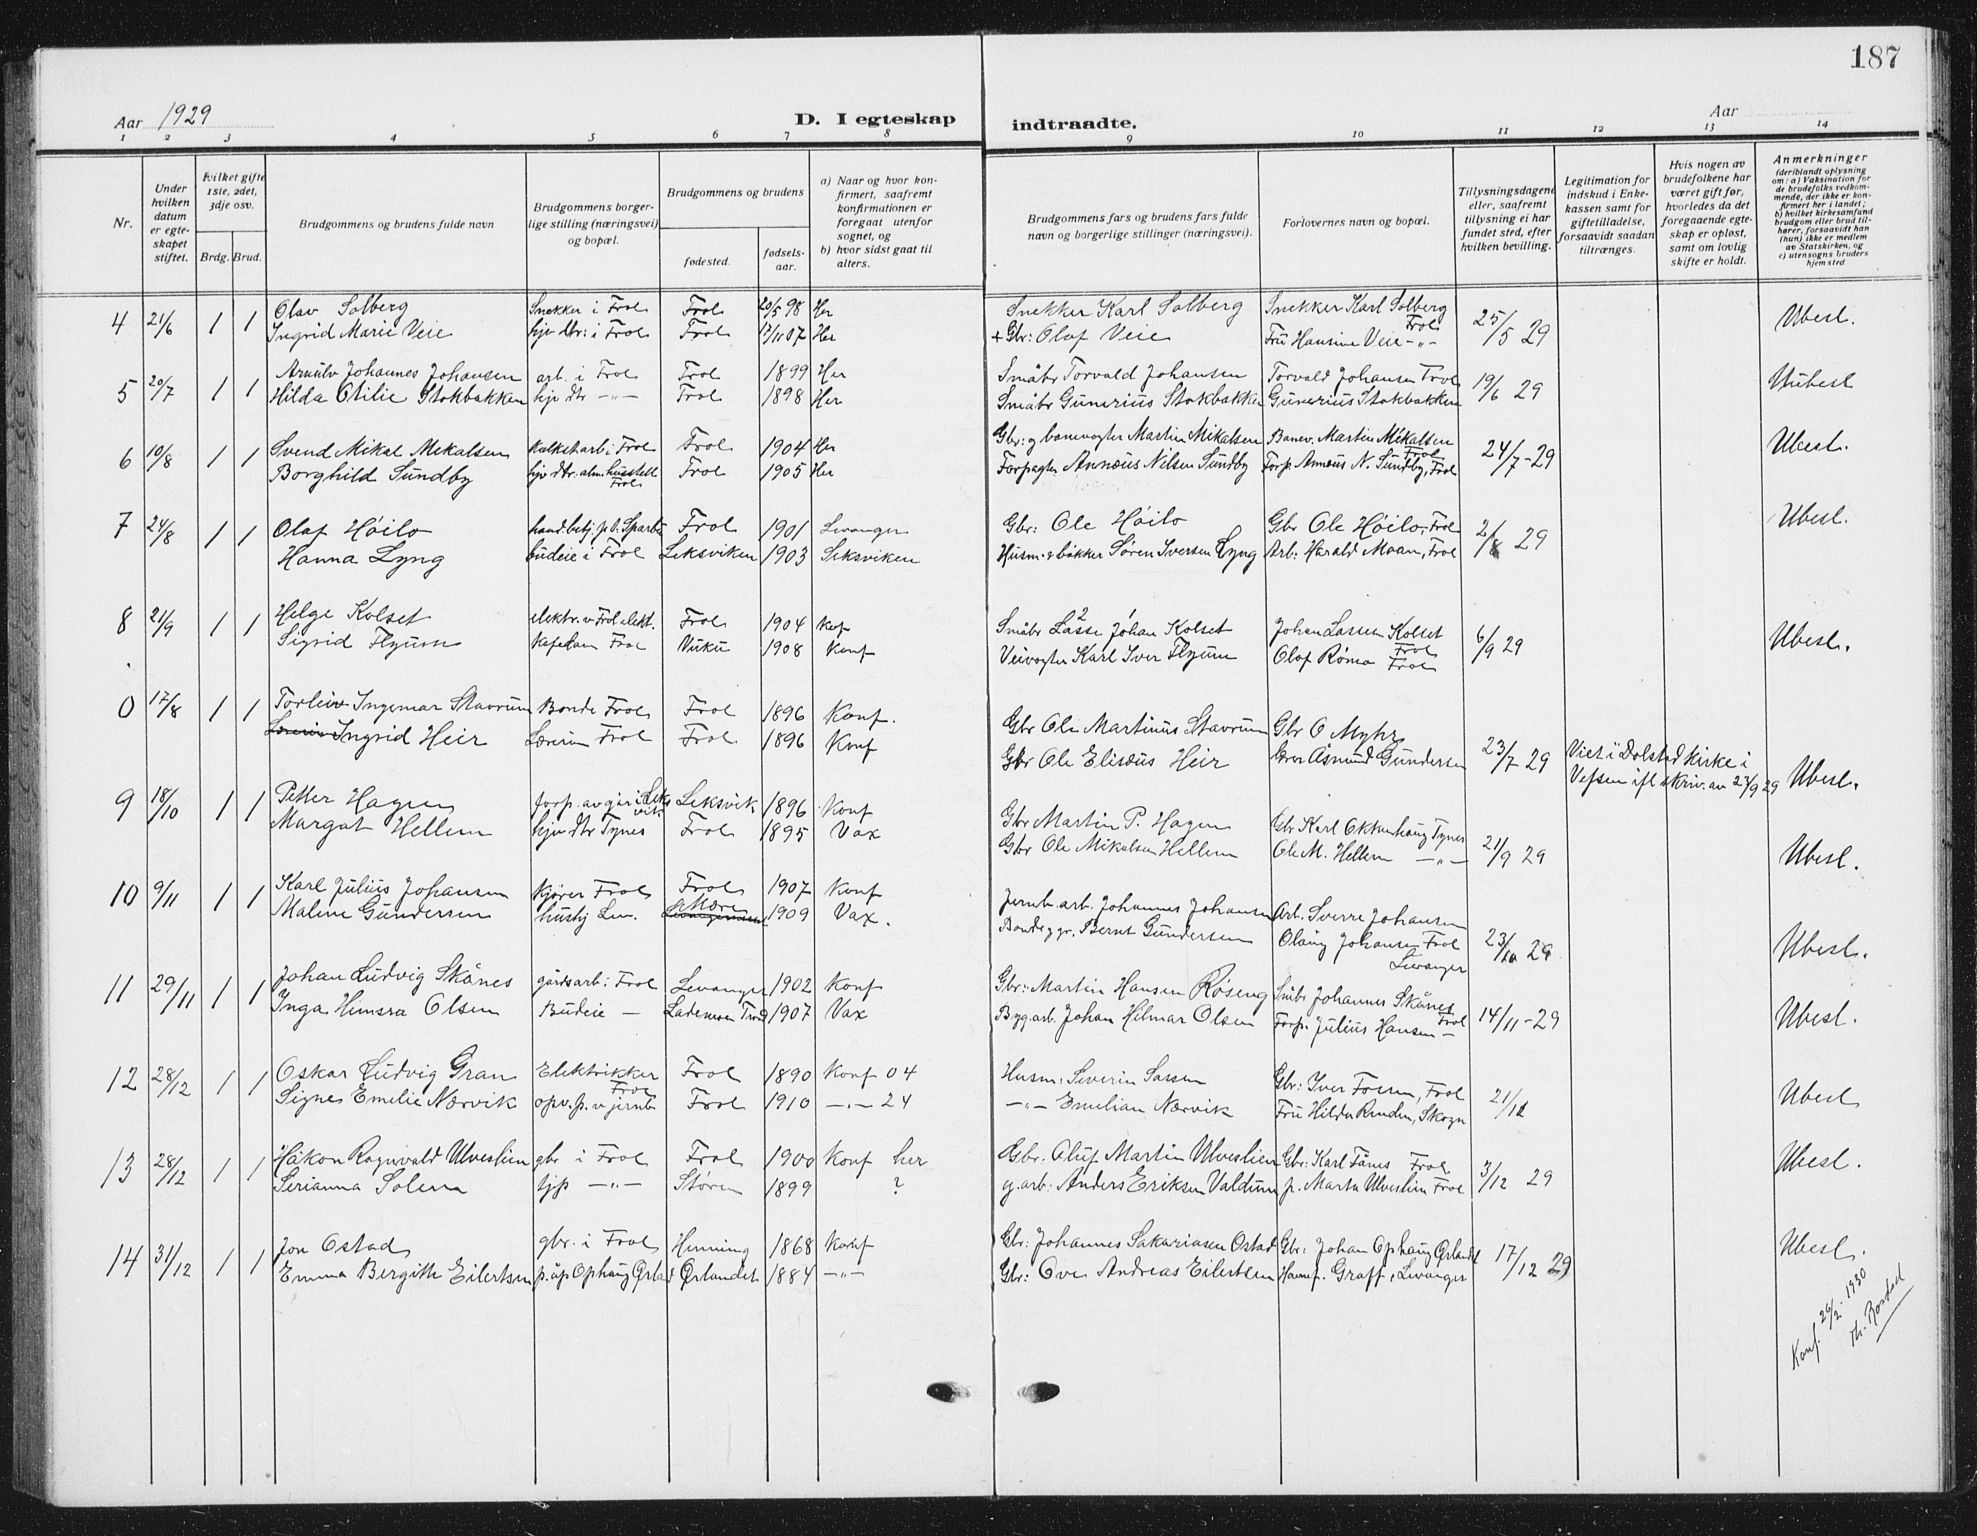 187
Aar 1929
D. I egteskap indtraadte.
Aar
1 2 3 4 5 6 7 8 9 10 11 12 13 14
Nr.
Under hvilken datum er egteskapet stiftet.
Hvilket gifte 1ste, 2det, 3dje osv.
Brdg. Brud.
Brudgommens og brudens fulde navn
Brudgommens borgerlige stilling (næringsvei) og bopæl.
Brudgommens og brudens
fødested.
fødselsaar.
a) Naar og hvor konfirmert, saafremt konfirmationen er foregaat utenfor sognet, og
b) hvor sidst gaat til alters.
Brudgommens fars og brudens fars fulde navn og borgerlige stillinger (næringsvei).
Forlovernes navn og bopæl.
Tillysningsdagene eller, saafremt tillysning ei har fundet sted, efter hvilken bevilling.
Legitimation for indskud i Enkekassen samt for giftetilladelse, forsaavidt saadan tiltrænges.
Hvis nogen av brudefolkene har været gift før, hvorledes da det foregaaende egteskap er opløst, samt om lovlig skifte er holdt.
Anmerkninger
(deriblandt oplysning om: a) Vaksination for de brudefolks vedkommende, der ikke er konfirmert her i landet; b) hvilket kirkesamfund brudgom eller brud tilhører, forsaavidt han (hun) ikke er medlem av Statskirken, og c) utensogns bruders hjemsted
4 21/6 1 1 Olav Solberg Snekker i Frol Frol 20/5 98 Her Snekker Karl Solberg Snekker Karl Solberg Frol 25/5 29 Ubesl.
Ingrid Marie Veie hjv. dtr: i Frol Frol 17/11 07 Her + Gbr: Olaf Veie Fru Hansine Veie -"-
5 20/7 1 1 Arnulv Johannes Johansen arb. i Frol Frol 1899 Her Småbr Torvald Johansen Torvald Johansen Frol 19/6 29 Uubesl
Hilda Otilie Stokbakken hjv dtr -"- Frol 1898 Her Småbr Gunerius Stokbakken Gunerius Stokbakken
6 10/8 1 1 Svend Mikal Mikalsen kalkst.arb i Frol Frol 1904 Her Gbr: og banevogter Martin Mikalsen Banev. Martin Mikalsen Frol 24/7 - 29 Ubesl.
Borghild Sundby hjv dtr. alm. husstell Frol Frol 1905 Her Forpagter Annæus Nilsen Sundby Forp. Annæus N. Sundby, Frol
7 24/8 1 1 Olaf Höilo hand.betj. p. t. Sparbu Frol 1901 Levanger Gbr: Ole Höilo Gbr Ole Höilo, Frol 2/8 29 Ubesl.
Hanna Lyng budeie i Frol Leksviken 1903 Leksviken Husm. & bökker Sören Iversen Lyng Arb: Harald Moan, Frol
8 21/9 1 1 Helge Kolset elektr. v Frol elekt. Frol 1904 Småbr Lasse Johan Kolset Johan Lassen Kolset Frol 6/9 29 Ubesl.
Sigrid Flyum Frol Vuku 1908 Konf Veivogter Karl Iver Flyum Olaf Römo Frol
0 17/8 1 1 Torleiv Ingemar Stavrum Bonde Frol Frol 1896 Konf. Gbr Ole Martinus Stavrum Gbr O Myhr 23/7 29 Viet i Dolstad Kirke i Ubesl.
Ingrid Heir Lærerin Frol Frol 1896 Konf Gbr Ole Elisæus Heir Asmund Gundersen Vefsen ifl skriv. av 23/9 29
9 18/10 1 1 Petter Hagen forp. av går i Leksvik Leksvik 1896 Konf Gbr Martin P. Hagen Gbr Karl Tynes 21/9 29 Ubesl.
Margot Hellem hjv dtr Tynes Frol 1895 Vax Gbr Ole Mikalsen Hellem Ole M. Hellem -"-
10 9/11 1 1 Karl Julius Johansen kjører Frol Frol 1907 Konf Jernb. arb. Johannes Johansen Arb. Sverre Johansen 23/10 29 Ubesl.
Malene Gundersen hushj Lev. Mære 1909 Vax. Bernt Gundersen Olaug Johansen Frol Levanger
11 29/11 1 1 Johan Ludvig Skånes gårdsarb: Frol Levanger 1902 Konf Gbr: Martin Hansen Röseng Småbr Johannes Skånes Frol 14/11 - 29 Ubesl.
Inga Olsen Budeie - Lademoen Trd 1907 Vax Bygarb. Johan Hilmar Olsen Forp. Julius Hansen -
12 28/12 1 1 Oskar Ludvig Gran Elektrikker Frol Frol 1890 Konf 04 Husm: Severin Gbr: Iver Fossen, Frol 21/12 Ubesl
Signes Emelie Nærvik opv. p. v jernb Frol 1910 -"- 24 -"- Emilian Nærvik Fru Hilda, Skogn
13 28/12 1 1 Håkon Ragnvald Ulveslien gbr i Frol Frol 1900 Konf her Gbr. Oluf Martin Ulveslien Gbr: Karl Tånes Frol 3/12 29 Ubesl.
Serianna Solem tjp -"- Støren 1899 ? g. arb: Anders Eriksen Valdum p. Marta Ulveslien Frol
14 31/12 1 1 Jon Ostad gbr. i Frol Henning 1868 Konf Gbr: Johannes Sakariasen Ostad Gbr: Johan Ophaug Ørlandet 17/12 29 Ubesl.
Emma Bergitte Eilertsen p. åp Ophaug Ørland Ørlandet 1884 -"- Gbr: Ove Andreas Eilertsen Havnef. Graff, Levanger
Konf. 26/2 - 1930
Th. Rostad